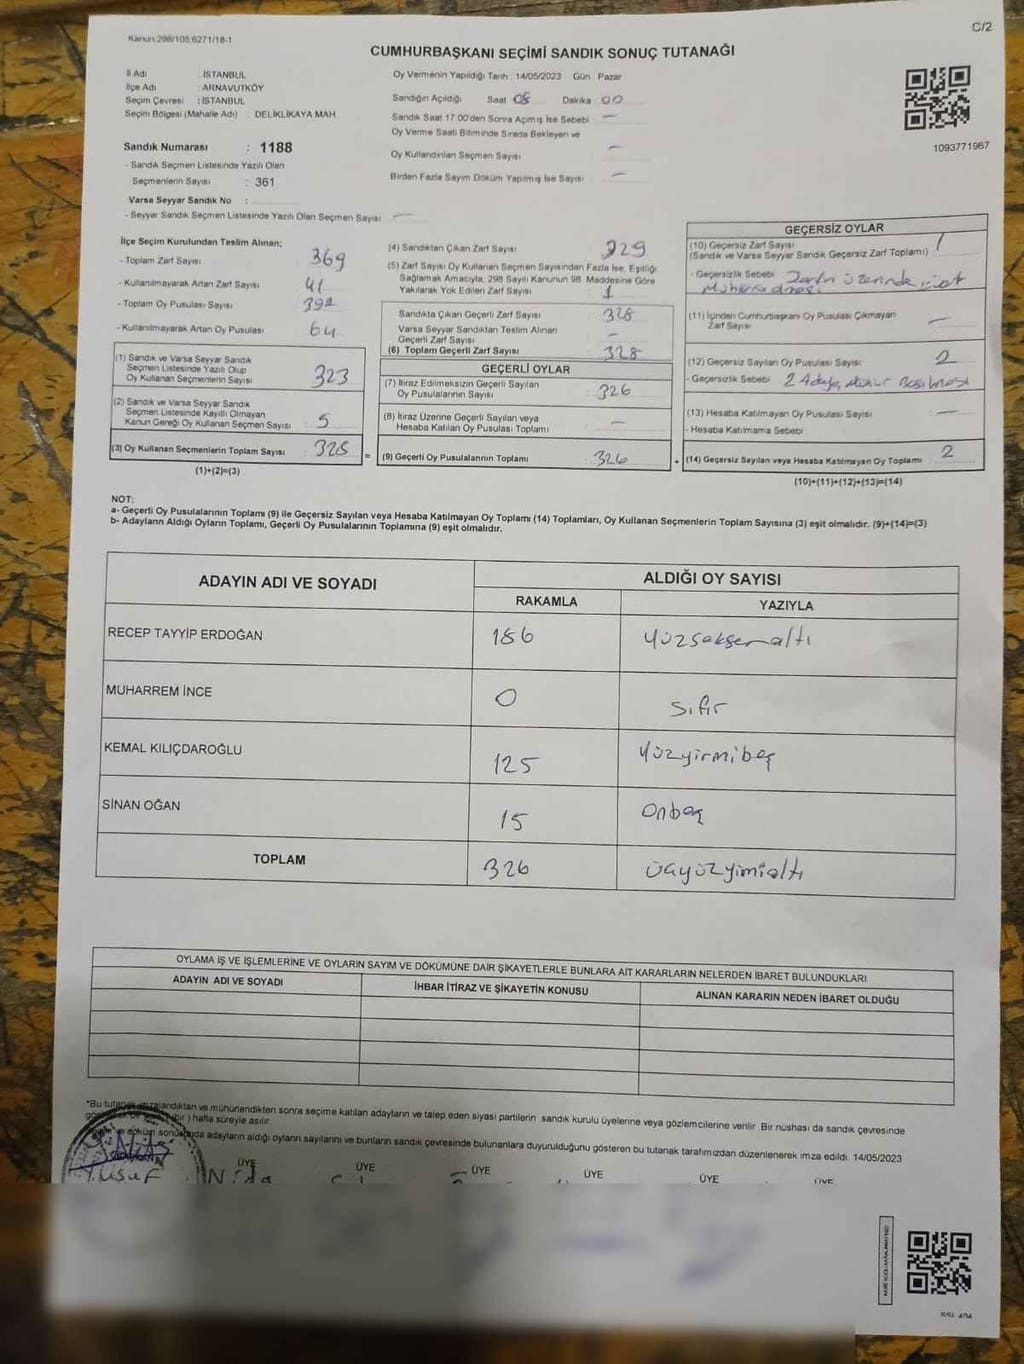 Kanun:298/105,6271/18-1
C/2
CUMHURBAŞKANI SEÇİMİ SANDIK SONUÇ TUTANAĞI
İl Adı : İSTANBUL
İlçe Adı : ARNAVUTKÖY
Seçim Çevresi : İSTANBUL
Seçim Bölgesi (Mahalle Adı) : DELİKLİKAYA MAH.
Sandık Numarası : 1188
- Sandık Seçmen Listesinde Yazılı Olan
Seçmenlerin Sayısı : 361
Varsa Seyyar Sandık No :
- Seyyar Sandık Seçmen Listesinde Yazılı Olan Seçmen Sayısı —
Oy Vermenin Yapıldığı Tarih : 14/05/2023 Gün : Pazar
Sandığın Açıldığı Saat 08 Dakika 00
Sandık Saat 17:00'den Sonra Açmış İse Sebebi : —
Oy Verme Saati Bitiminde Sırada Bekleyen ve
Oy Kullandırılan Seçmen Sayısı —
Birden Fazla Sayım Döküm Yapılmış İse Sayısı : —
1093771967
İlçe Seçim Kurulundan Teslim Alınan;
- Toplam Zarf Sayısı : 369
- Kullanılmayarak Artan Zarf Sayısı : 41
- Toplam Oy Pusulası Sayısı : 392
- Kullanılmayarak Artan Oy Pusulası : 64
(1) Sandık ve Varsa Seyyar Sandık
Seçmen Listesinde Yazılı Olup
Oy Kullanan Seçmenlerin Sayısı 323
(2) Sandık ve Varsa Seyyar Sandık
Seçmen Listesinde Kayıtlı Olmayan
Kanun Gereği Oy Kullanan Seçmen Sayısı 5
(3) Oy Kullanan Seçmenlerin Toplam Sayısı 328
(1)+(2)=(3)
(4) Sandıktan Çıkan Zarf Sayısı : 329
(5) Zarf Sayısı Oy Kullanan Seçmen Sayısından Fazla İse, Eşitliği
Sağlamak Amacıyla, 298 Sayılı Kanunun 98. Maddesine Göre
Yakılarak Yok Edilen Zarf Sayısı : 1
Sandıkta Çıkan Geçerli Zarf Sayısı : 328
Varsa Seyyar Sandıktan Teslim Alınan
Geçerli Zarf Sayısı : —
(6) Toplam Geçerli Zarf Sayısı : 328
GEÇERLİ OYLAR
(7) İtiraz Edilmeksizin Geçerli Sayılan
Oy Pusulalarının Sayısı : 326
(8) İtiraz Üzerine Geçerli Sayılan veya
Hesaba Katılan Oy Pusulası Toplamı : —
= (9) Geçerli Oy Pusulalarının Toplamı : 326
GEÇERSİZ OYLAR
(10) Geçersiz Zarf Sayısı 1
(Sandık ve Varsa Seyyar Sandık Geçersiz Zarf Toplamı)
- Geçersizlik Sebebi : Zarfın üzerinde
(11) İçinden Cumhurbaşkanı Oy Pusulası Çıkmayan
Zarf Sayısı : —
(12) Geçersiz Sayılan Oy Pusulası Sayısı : 2
- Geçersizlik Sebebi 2 Adaya Mühür Basılması
(13) Hesaba Katılmayan Oy Pusulası Sayısı : —
- Hesaba Katılmama Sebebi :
+ (14) Geçersiz Sayılan veya Hesaba Katılmayan Oy Toplamı : 2
(10)+(11)+(12)+(13)=(14)
NOT:
a- Geçerli Oy Pusulalarının Toplamı (9) ile Geçersiz Sayılan veya Hesaba Katılmayan Oy Toplamı (14) Toplamları, Oy Kullanan Seçmenlerin Toplam Sayısına (3) eşit olmalıdır. (9)+(14)=(3)
b- Adayların Aldığı Oyların Toplamı, Geçerli Oy Pusulalarının Toplamına (9) eşit olmalıdır.
ADAYIN ADI VE SOYADI
ALDIĞI OY SAYISI
RAKAMLA YAZIYLA
RECEP TAYYİP ERDOĞAN 186 Yüzsaksenaltı
MUHARREM İNCE 0 Sıfır
KEMAL KILIÇDAROĞLU 125 Yüzyirmibeş
SİNAN OĞAN 15 Onbeş
TOPLAM 326 üçyüzyimialtı
OYLAMA İŞ VE İŞLEMLERİNE VE OYLARIN SAYIM VE DÖKÜMÜNE DAİR ŞİKAYETLERLE BUNLARA AİT KARARLARIN NELERDEN İBARET BULUNDUKLARI
ADAYIN ADI VE SOYADI İHBAR İTİRAZ VE ŞİKAYETİN KONUSU ALINAN KARARIN NEDEN İBARET OLDUĞU
*Bu tutanak imzalandıktan ve mühürlendikten sonra seçime katılan adayların ve talep eden siyasi partilerin sandık kurulu üyelerine veya gözlemcilerine verilir. Bir nüshası da sandık çevresinde
(bir) hafta süreyle asılır.
ve döküm sonucunda adayların aldığı oyların sayılarını ve bunların sandık çevresinde bulunanlara duyurulduğunu gösteren bu tutanak tarafımızdan düzenlenerek imza edildi. 14/05/2023
ÜYE ÜYE ÜYE ÜYE ÜYE ÜYE
Yusuf Nida